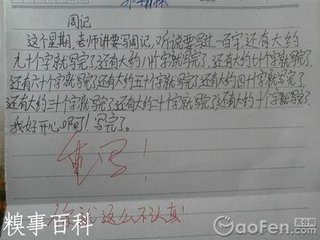 周记
这个星期,老师讲要写周记,听说要写过一百字还有大约
九十个字就写完了还有大约八十个字就写完了,还有大约七十个字就写完了
还有六十个字就写完了还有大约五十个字就写完了还有大约四十个字就写完了
还有大约三十个字就写完了还有大约二十个字就写完了还有大约十个字就写完了.
我好开心啊!写完了.
重写!
这么不认真!
糗事百科
高分网
GaoFen.com